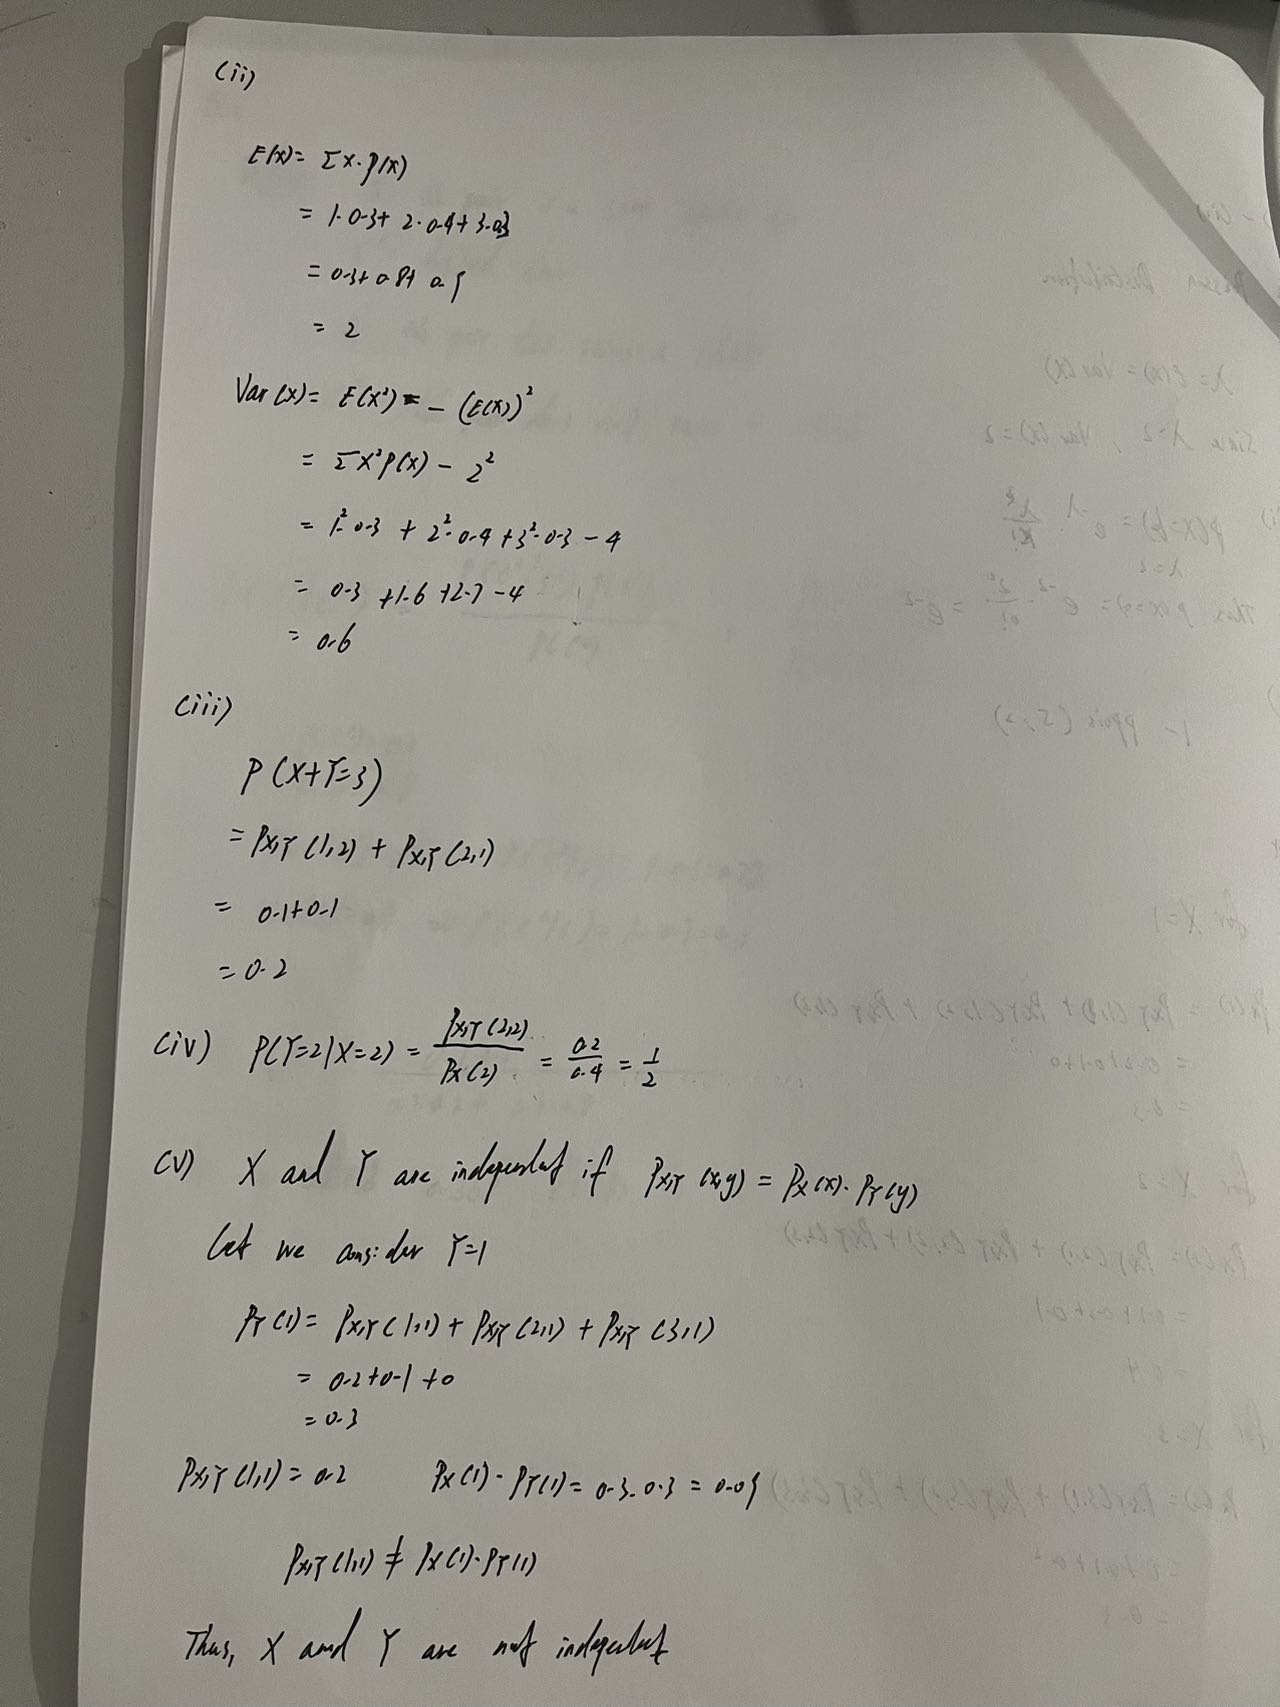 (ii)
E(X) = Σ X · P(X)
= 1·0.3 + 2·0.4 + 3·0.3
= 0.3 + 0.8 + 0.9
= 2
Var(X) = E(X²) - (E(X))²
= Σ X² P(X) - 2²
= 1²·0.3 + 2²·0.4 + 3²·0.3 - 4
= 0.3 + 1.6 + 2.7 - 4
= 0.6
(iii)
P(X+Y=3)
= P_{X,Y}(1,2) + P_{X,Y}(2,1)
= 0.1+0.1
= 0.2
(iv) P(Y=2|X=2) = P_{X,Y}(2,2) / P_X(2) = 0.2 / 0.4 = 1/2
(v) X and Y are independent if P_{X,Y}(x,y) = P_X(x) · P_Y(y)
Let we consider Y=1
P_Y(1) = P_{X,Y}(1,1) + P_{X,Y}(2,1) + P_{X,Y}(3,1)
= 0.2+0.1+0
= 0.3
P_{X,Y}(1,1) = 0.2 P_X(1) · P_Y(1) = 0.3·0.3 = 0.09
P_{X,Y}(1,1) ≠ P_X(1)·P_Y(1)
Thus, X and Y are not independent